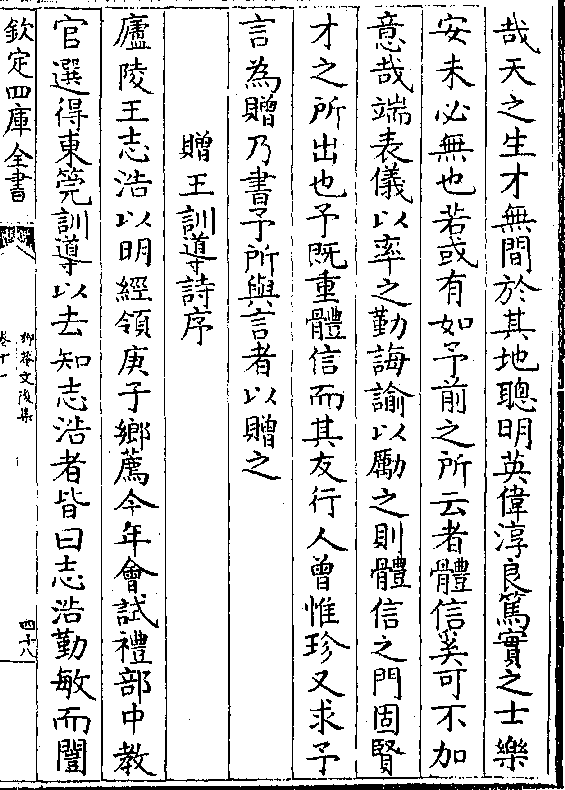 哉天之生才無間於其地聰明英偉淳良篤實之士樂
安未必無也若或有如予前之所云者體信奚可不加
意哉端表儀以率之勤誨諭以勵之則體信之門固賢
才之所出也予既重體信而其友行人曾惟珍又求予
言為贈乃書予所與言者以贈之
贈王訓導詩序
廬陵王志浩以明經領庚子鄉薦今年會試禮部中教
官選得東筦訓導以去知志浩者皆曰志浩勤敏而誾
欽定四庫全書
抑菴文後集
卷十一
四十八